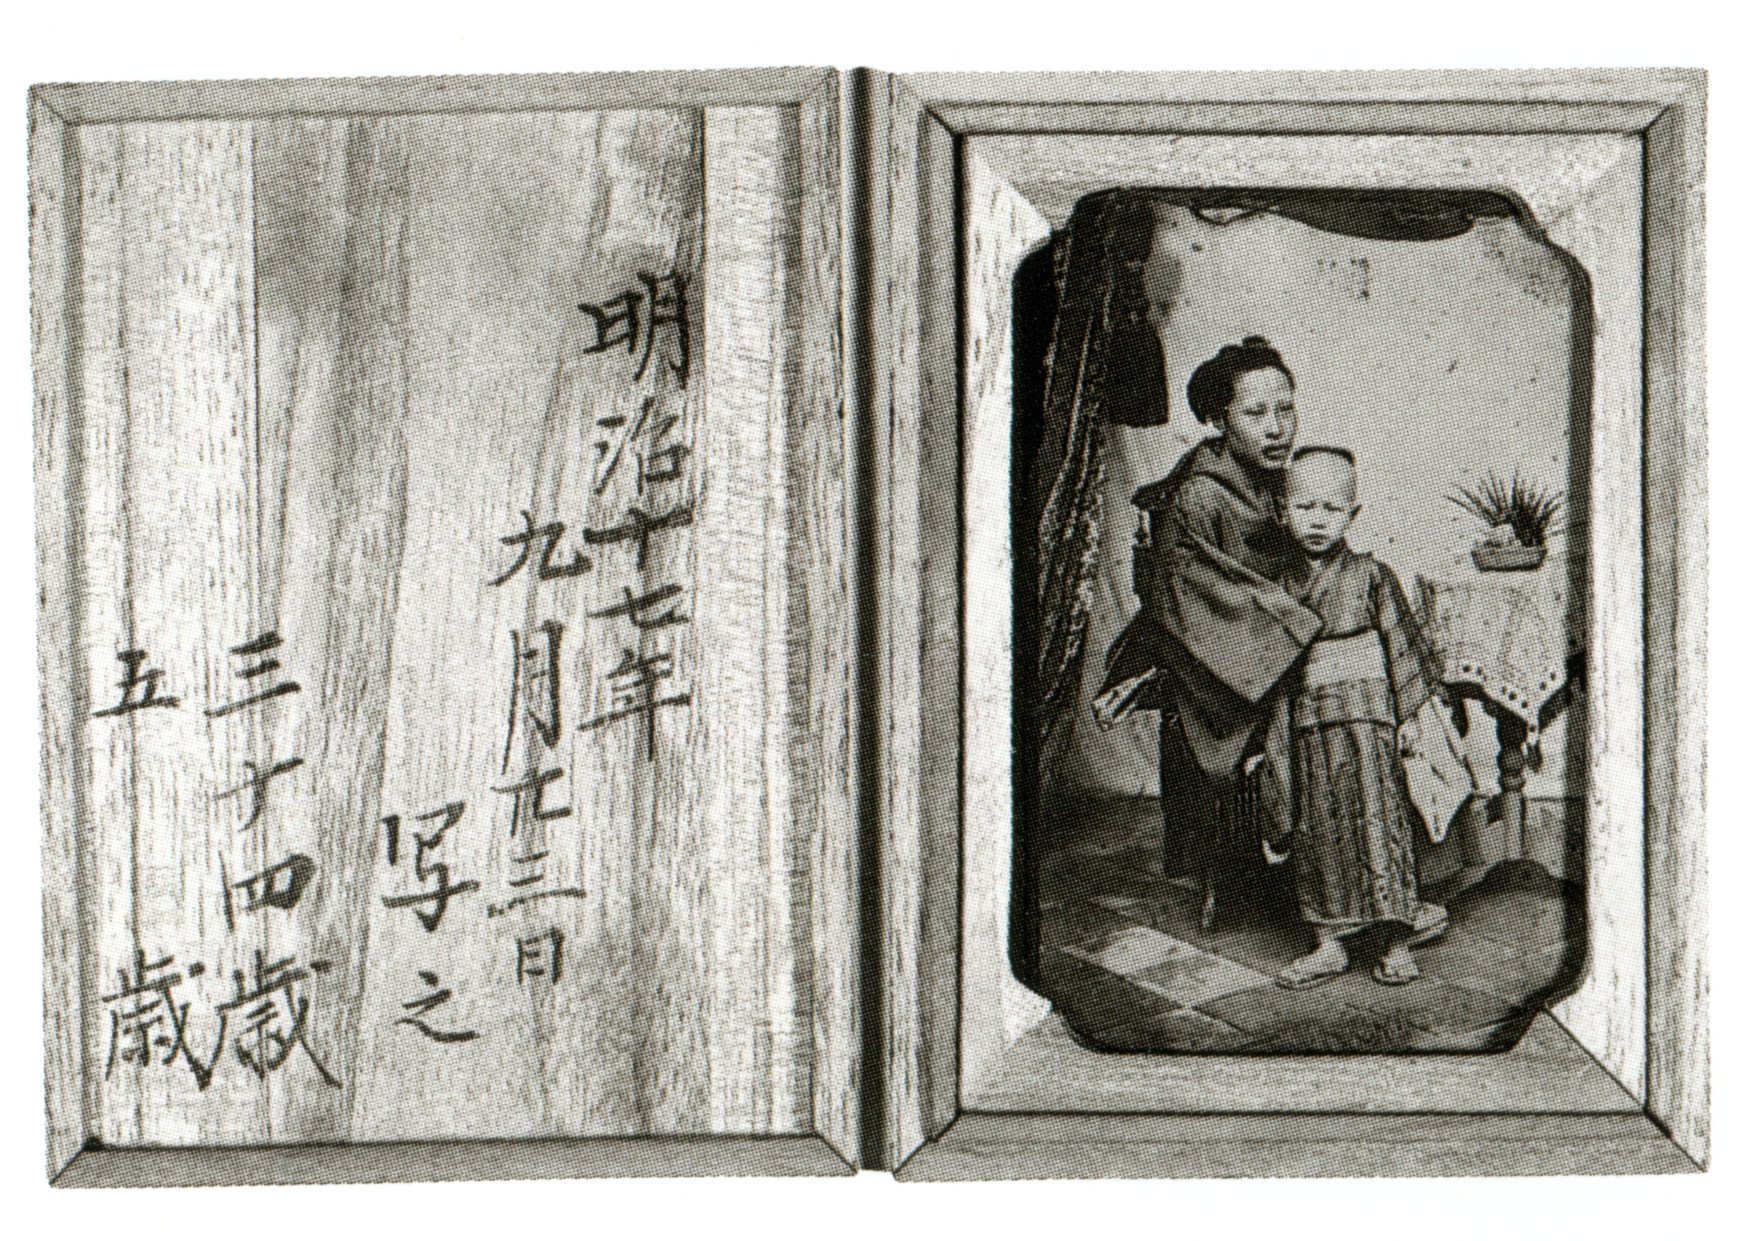 明治十七年
九月十三日
写之
三十四歳
五歳